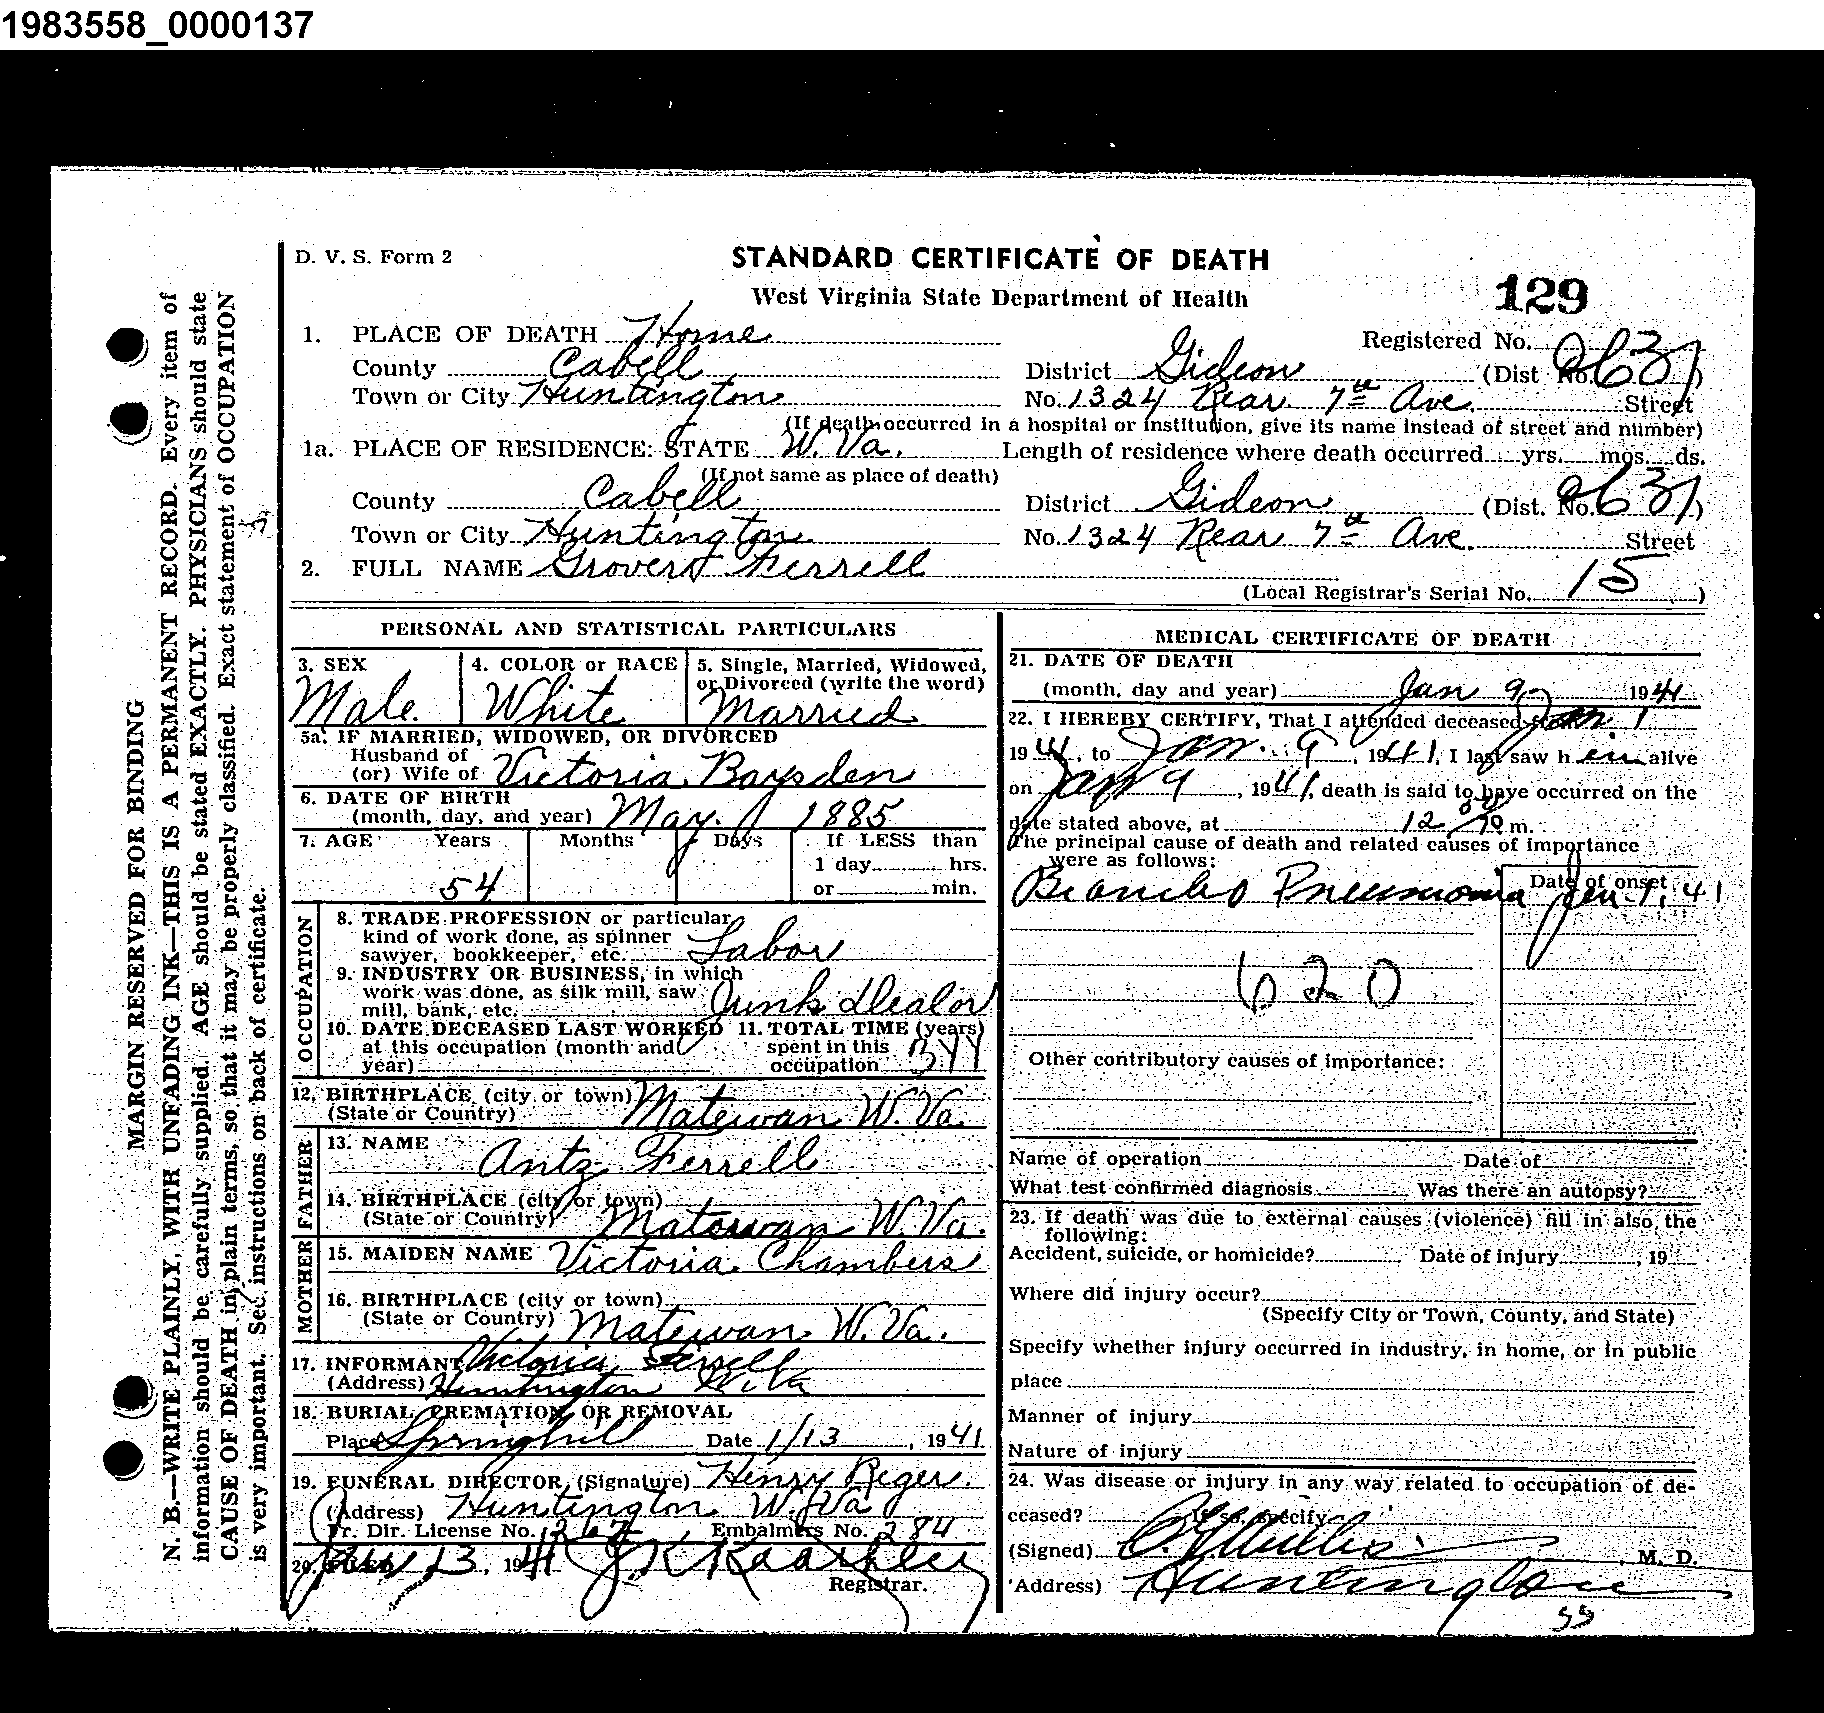 1983558_0000137
D. V. S. Form 2
STANDARD CERTIFICATE OF DEATH
West Virginia State Department of Health
129
1. PLACE OF DEATH Home
Registered No.
County Cabell District Gideon (Dist No. 2631)
Town or City Huntington No. 1324 Rear 7th Ave. Street
(If death occurred in a hospital or institution, give its name instead of street and number)
1a. PLACE OF RESIDENCE: STATE W. Va. Length of residence where death occurred yrs. mos. ds.
(If not same as place of death)
County Cabell District Gideon (Dist. No. 2631)
Town or City Huntington No. 1324 Rear 7th Ave. Street
2. FULL NAME Grover Ferrell
(Local Registrar's Serial No. 15)
PERSONAL AND STATISTICAL PARTICULARS
3. SEX Male
4. COLOR or RACE White
5. Single, Married, Widowed,
or Divorced (write the word)
Married
5a. IF MARRIED, WIDOWED, OR DIVORCED
Husband of
(or) Wife of Victoria Baysden
6. DATE OF BIRTH
(month, day, and year) May 1885
7. AGE Years Months Days If LESS than
1 day hrs.
54 or min.
OCCUPATION
8. TRADE PROFESSION or particular
kind of work done, as spinner
sawyer, bookkeeper, etc. Labor
9. INDUSTRY OR BUSINESS, in which
work was done, as silk mill, saw
mill, bank, etc. Junk Dealor
10. DATE DECEASED LAST WORKED
at this occupation (month and
year)
11. TOTAL TIME (years)
spent in this
occupation
12. BIRTHPLACE (city or town) Matewan W. Va.
(State or Country)
FATHER
13. NAME Antz Ferrell
14. BIRTHPLACE (city or town)
(State or Country) Matewan W. Va.
MOTHER
15. MAIDEN NAME Victoria Chambers
16. BIRTHPLACE (city or town)
(State or Country) Matewan W. Va.
17. INFORMANT Victoria Ferrell
(Address) Huntington W. Va
18. BURIAL CREMATION OR REMOVAL
Place Springhill Date 1/13, 1941
19. FUNERAL DIRECTOR (Signature) Henry Reger.
(Address) Huntington W. Va
Fr. Dir. License No. Embalmers No. 284
20. FILED Jan 13, 1941
Registrar.
MEDICAL CERTIFICATE OF DEATH
21. DATE OF DEATH
(month, day and year) Jan 9 1941
22. I HEREBY CERTIFY, That I attended deceased from Jan 1
1941, to Jan. 9, 1941, I last saw h im alive
on Jan 9, 1941, death is said to have occurred on the
date stated above, at 12 m.
The principal cause of death and related causes of importance
were as follows:
Date of onset
Broncho Pneumonia Jan. 1, 41
620
Other contributory causes of importance:
Name of operation Date of
What test confirmed diagnosis Was there an autopsy?
23. If death was due to external causes (violence) fill in also the
following:
Accident, suicide, or homicide? Date of injury , 19
Where did injury occur?
(Specify City or Town, County, and State)
Specify whether injury occurred in industry, in home, or in public
place
Manner of injury
Nature of injury
24. Was disease or injury in any way related to occupation of de-
ceased? If so, specify
(Signed) M. D.
(Address) Huntington
MARGIN RESERVED FOR BINDING
N. B.—WRITE PLAINLY, WITH UNFADING INK—THIS IS A PERMANENT RECORD. Every item of
information should be carefully supplied. AGE should be stated EXACTLY. PHYSICIANS should state
CAUSE OF DEATH in plain terms, so that it may be properly classified. Exact statement of OCCUPATION
is very important. See instructions on back of certificate.